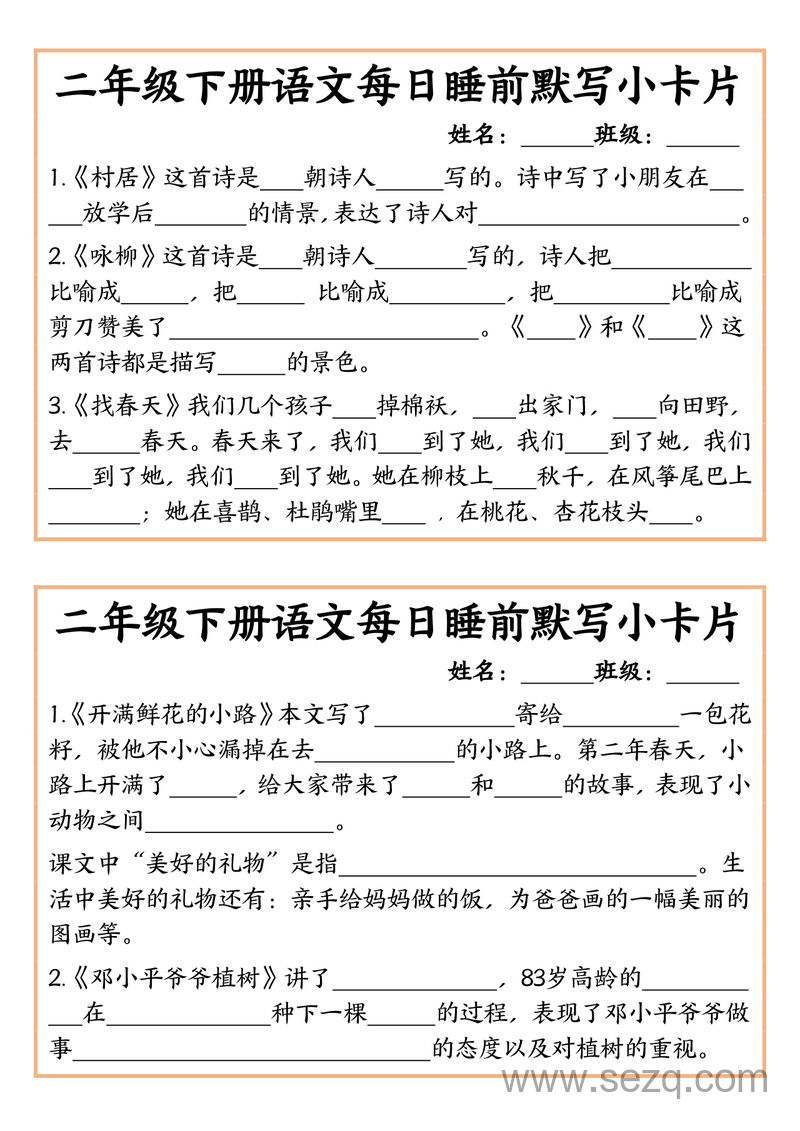 二年级下册语文每日睡前默写小卡片
姓名：______班级：______
1.《村居》这首诗是____朝诗人______写的。诗中写了小朋友在___
___放学后________的情景,表达了诗人对_______________________。
2.《咏柳》这首诗是____朝诗人________写的，诗人把____________
比喻成______，把______ 比喻成__________，把__________比喻成
剪刀赞美了___________________________。《____》和《____》这
两首诗都是描写______的景色。
3.《找春天》我们几个孩子____掉棉袄，____出家门，____向田野，
去______春天。春天来了，我们____到了她，我们____到了她，我们
____到了她，我们____到了她。她在柳枝上____秋千，在风筝尾巴上
________；她在喜鹊、杜鹃嘴里____ ，在桃花、杏花枝头____。
二年级下册语文每日睡前默写小卡片
姓名：______班级：______
1.《开满鲜花的小路》本文写了____________寄给__________一包花
籽，被他不小心漏掉在去____________的小路上。第二年春天，小
路上开满了______,给大家带来了______和______的故事,表现了小
动物之间________________。
课文中“美好的礼物”是指_______________________________。生
活中美好的礼物还有：亲手给妈妈做的饭，为爸爸画的一幅美丽的
图画等。
2.《邓小平爷爷植树》讲了______________，83岁高龄的_________
___在______________种下一棵______的过程，表现了邓小平爷爷做
事_______________________________的态度以及对植树的重视。
www.sezq.com